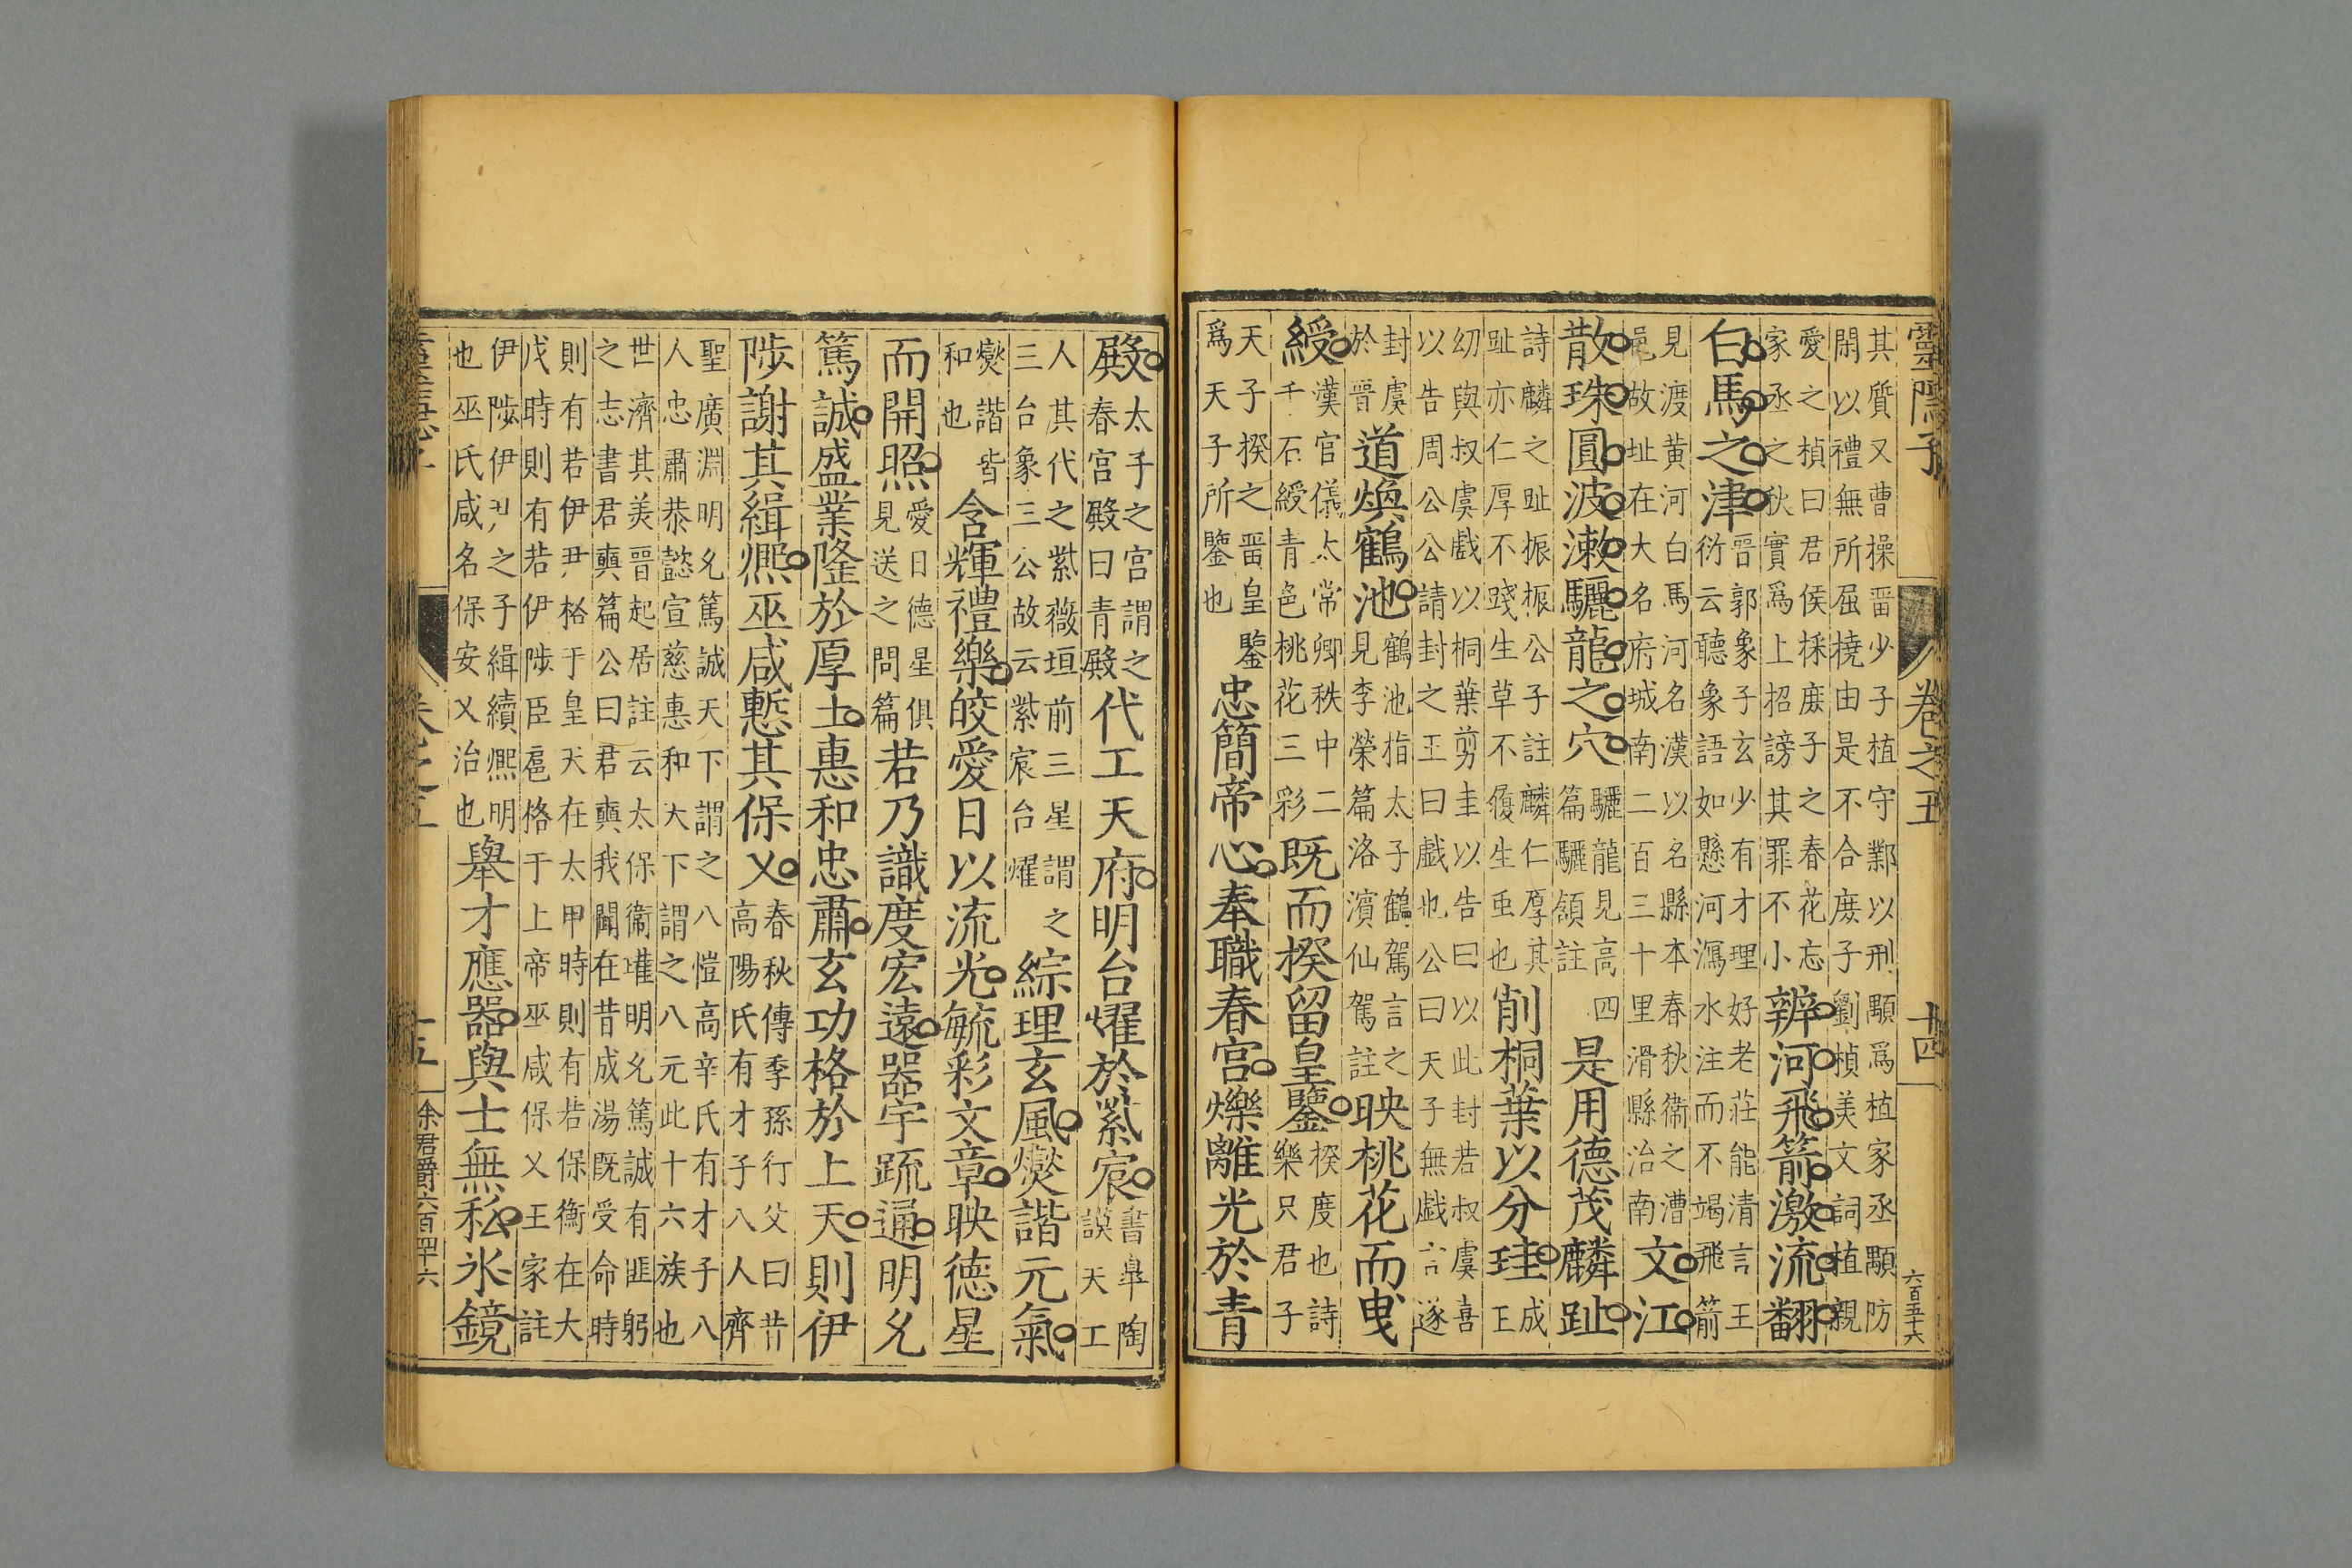 靈隱子 卷之五 十四 六百五十六
其質又曹操畱少子植守鄴以刑顒爲植家丞顒防
閑以禮無所屈撓由是不合庶子劉楨美文詞植親
愛之楨曰君侯採庶子之春花忘
家丞之秋實爲上招謗其罪不小
辨河飛箭激流翻
白馬之津
晋郭象子玄少有才理好老莊能清言王
衍云聽象語如懸河瀉水注而不竭飛箭
見渡黄河白馬河名漢以名縣本春秋衛之漕
邑故址在大名府城南二百三十里滑縣治南
文江
散珠圓波漱驪龍之穴
驪龍見高四
篇驪頷註
是用德茂麟趾
詩麟之趾振振公子註麟仁厚其
趾亦仁厚不踐生草不履生虫也
削桐葉以分珪
成
王
幼與叔虞戲以桐葉剪圭以告曰以此封若叔虞喜
以告周公公請封之王曰戲也公曰天子無戲言遂
封虞
於晋
道煥鶴池
鶴池指太子鶴駕言之
見李榮篇洛濱仙駕註
映桃花而曳
綬
漢官儀太常卿秩中二
千石綬青色桃花三彩
既而揆留皇鑒
揆度也詩
樂只君子
天子揆之畱皇鑒
爲天子所鑒也
忠簡帝心奉職春宫爍離光於青
殿
太子之宫謂之
春宫殿曰青殿
代工天府明台燿於紫宸
書皐陶
謨天工
人其代之紫薇垣前三星謂之
三台象三公故云紫宸台燿
綜理玄風爕諧元氣
爕諧皆
和也
含輝禮樂皎愛日以流光毓彩文章映德星
而開照
愛日德星俱
見送之問篇
若乃識度宏遠器宇疏通明允
篤誠盛業隆於厚土惠和忠肅玄功格於上天則伊
陟謝其緝熙巫咸慙其保乂
春秋傳季孫行父曰昔
高陽氏有才子八人齊
聖廣淵明允篤誠天下謂之八愷高辛氏有才子八
人忠肅恭懿宣慈惠和天下謂之八元此十六族也
世濟其美晋起居註云太保衛瓘明允篤誠有匪躬
之志書君奭篇公曰君奭我聞在昔成湯既受命時
則有若伊尹格于皇天在太甲時則有若保衡在大
戊時則有若伊陟臣扈格于上帝巫咸保乂王家註
伊陟伊尹之子緝續熙明
也巫氏咸名保安乂治也
舉才應器與士無私氷鏡
余君爵六百四十六